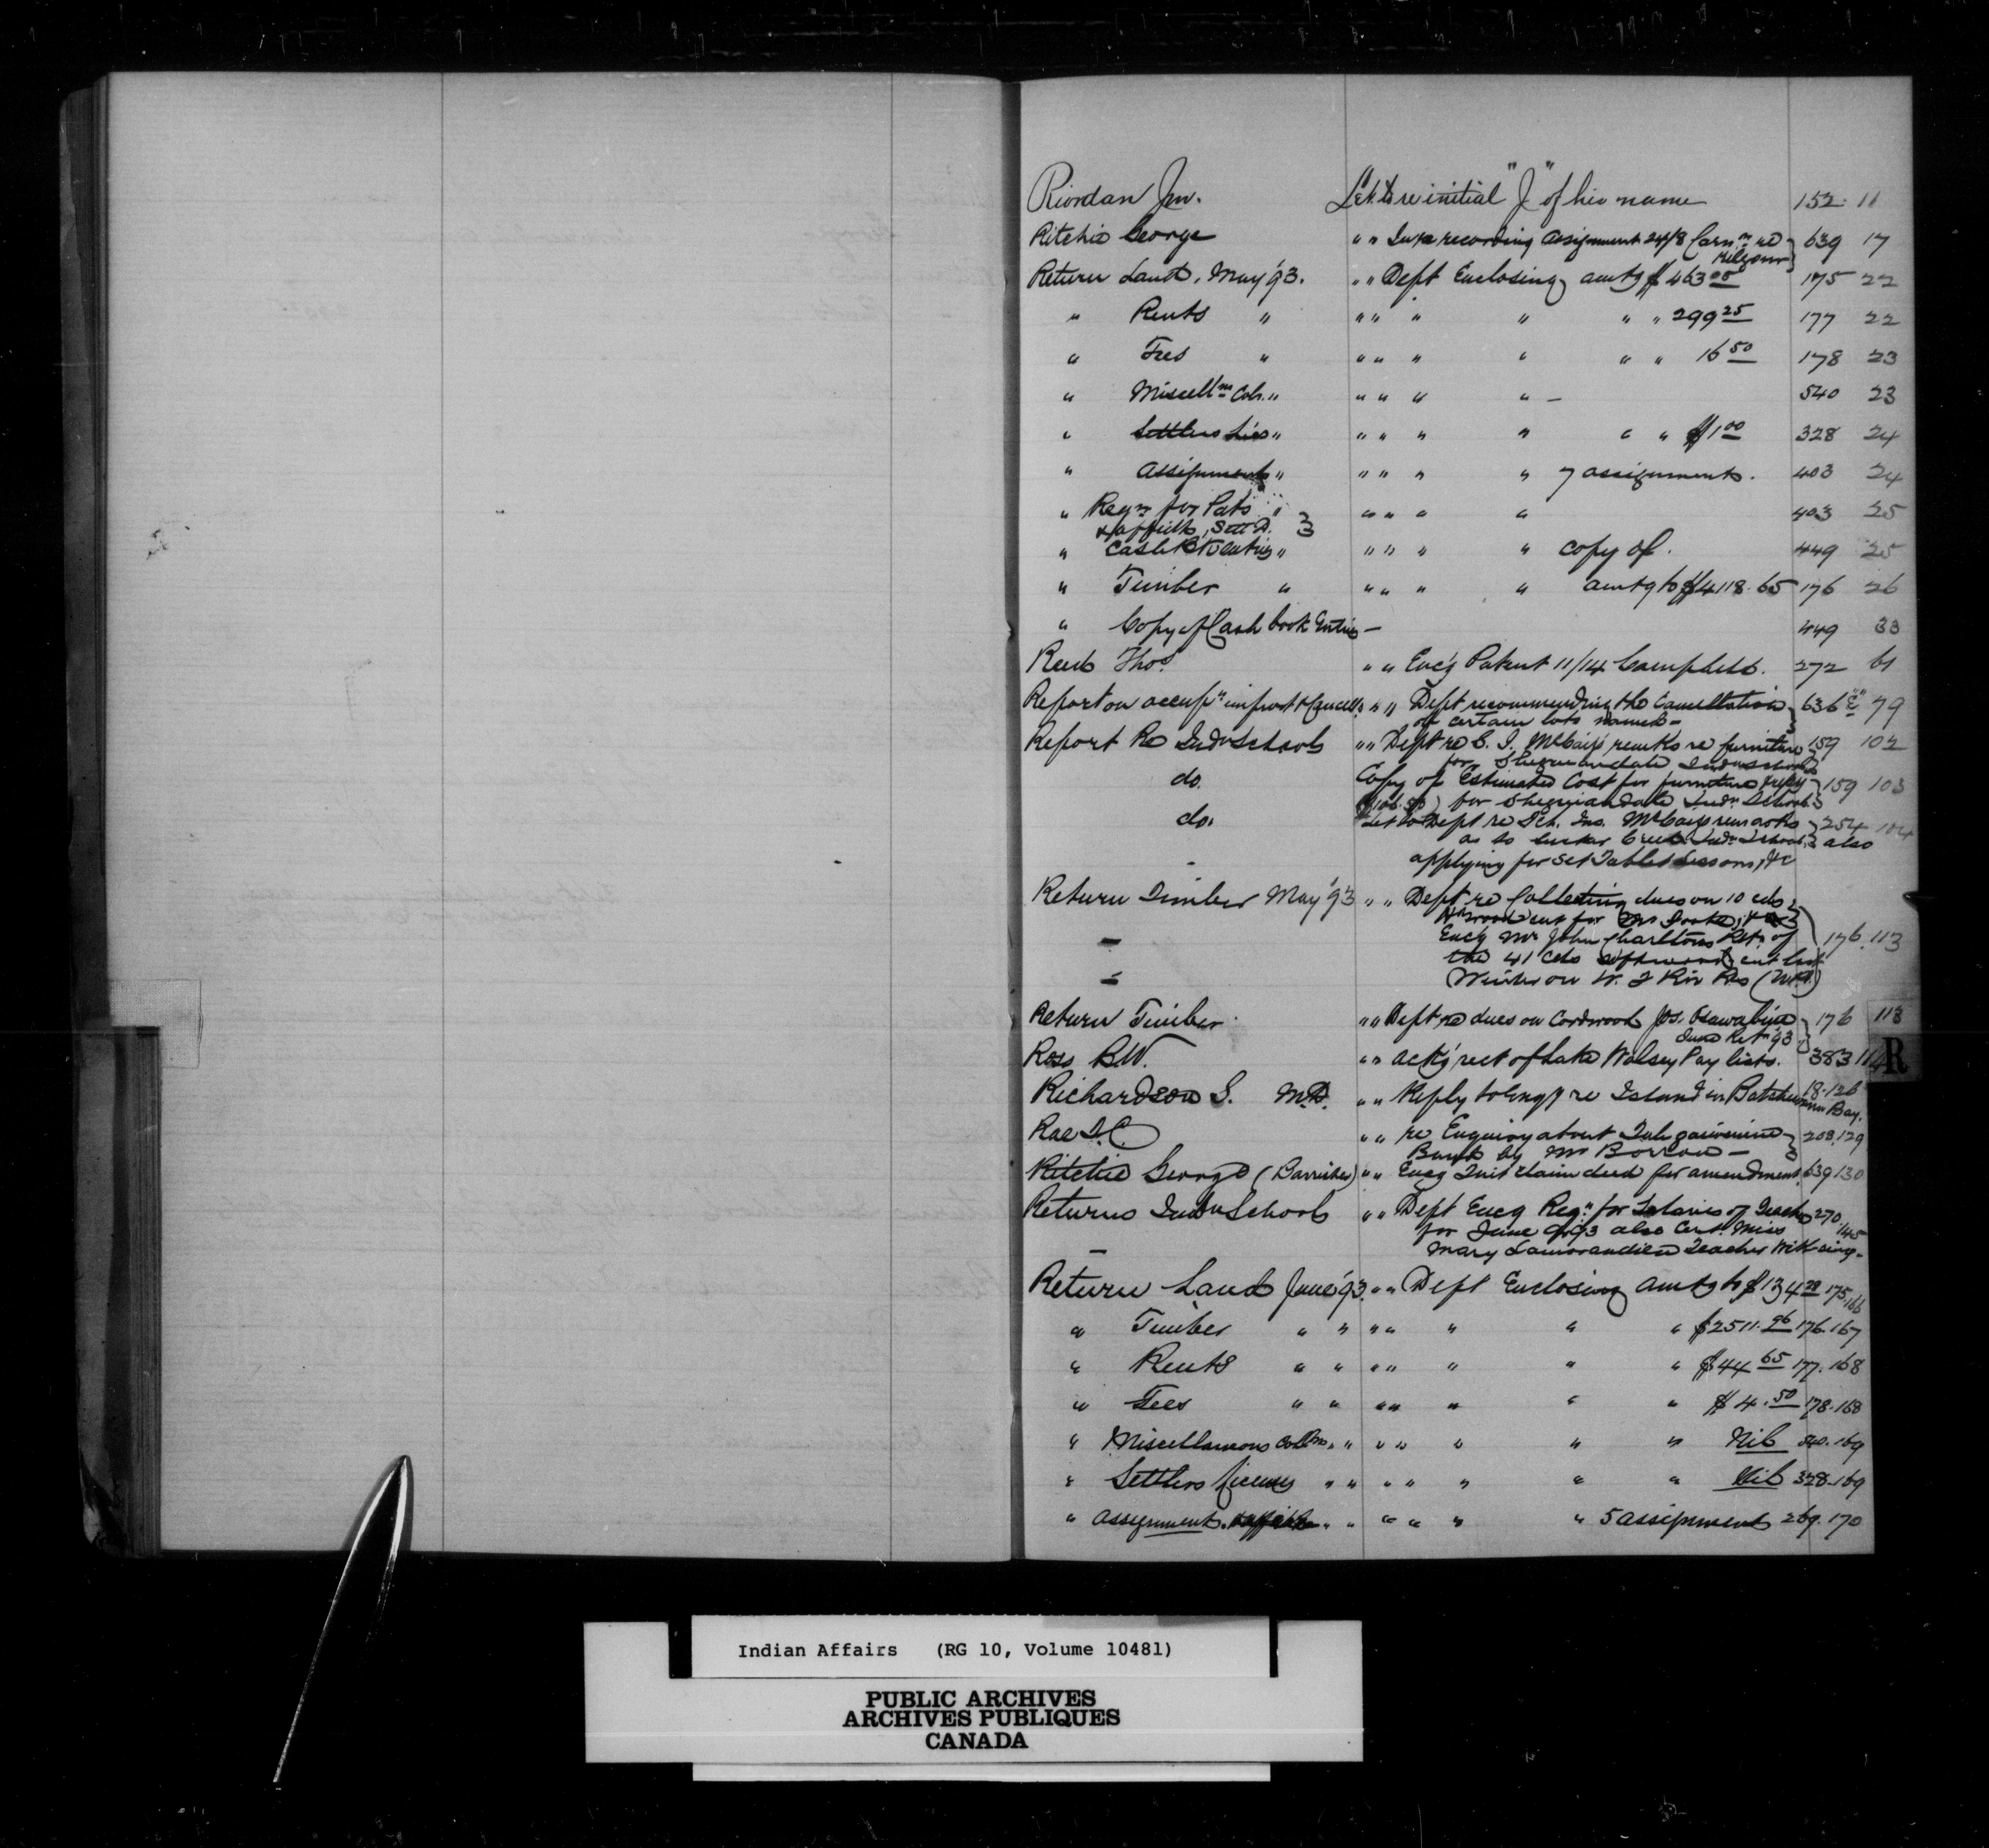 Riordan Jno. Let. to re initial "J" of his name 152. 11
Ritchie George " " recording Assignment 24/8 Carn re 639 17
Return Land, May '93. " " Dept Enclosing amtg $ 463 00 175 22
" Rents " " " " " " " 299 25 177 22
" Fees " " " " " " " 16 50 178 23
" Miscell ns Col. " " " " " – 540 23
" Settlers Lics " " " " " " " $1 00 328 24
" Assignments " " " " " 7 assignments. 403 24
" Reqn for Pats " " " " " 403 25
& affidts, Sett D.
" Cash Bk Entries " " " " " copy of. 449 25
" Timber " " " " " amtg to $4118.65 176 26
" Copy of Cash book Entries – 449 33
Thos. " " Enc'g Patent 11/14 Campbell. 272 61
Report on occupn improvt & Cancell. " " Dept recommending the Cancellation 636 E 79
of certain lots named –
Report Re Indn Schools " " Dept re remarks re furniture 159 102
for Sheguiandah Indn School
do. Copy of Estimated Cost for furniture 159 103
for Sheguiandah Indn School
do. Let to Dept re Sch. Ins. McCaig's remarks 254 104
as to Indn School, also
applying for set Tablet Lessons, &c
Return Timber May '93 " " Dept re Collecting dues on 10 cds
wood cut for
Encg Mr John Charltons Ret. of 176. 113
the 41 cds cut last
Winter on
Return Timber " " Dept re dues on Cordwood Jos. 176 113
June Retn '93
Ross B.W. " " ack'g rect of Lake Wolsey Pay lists. 383 114
R
Richardson S. M.D. " " Reply to re Island in Batchewana Bay. 18.126
Rae " " re Enquiry about 208.129
by Mr
Ritchie George (Barrister) " " Encg Quit claim deed for amendment 639 130
Returns Indn Schools " " Dept Encg Reqn for Salaries of Teachers 270. 145
for June Qr '93 also Cert. Miss
Mary Lamorandiere Teacher
Return Land June '93. " " Dept Enclosing amtg to $ 134 175. 166
" Timber " " " " " " " $2511.96 176.167
" Rents " " " " " " " $44 65 177.168
" Fees " " " " " " " $ 4.50 178.168
" Miscellaneous Collns " " " " " " " Nil 540.169
" Settlers licenses " " " " " " " Nil 328.169
" Assignment. " " " " " " 5 assignments 269.170
Indian Affairs (RG 10, Volume 10481)
PUBLIC ARCHIVES
ARCHIVES PUBLIQUES
CANADA